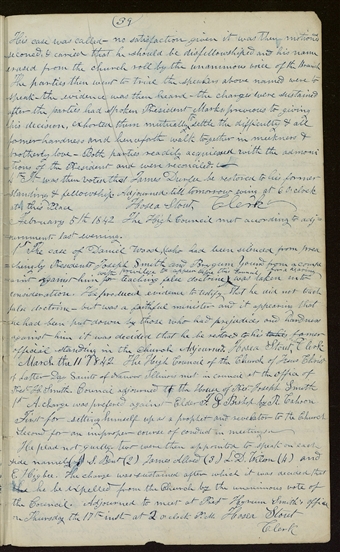 (39)
This case was called no satisfaction given it was then motioned
seconed & carried that he should be disfellowshiped and his name
erased from the church roll by the unanimous voice of the Branch
The parties then went to trial the speakers above named were to
speak— the evidence was then heard— the charges were sustained
after the parties had spoken President Marks previous to giving
his decision, exhorted them mutually settle the difficulty & all
former hardness and henceforth walk together in meekness &
brotherly love— Both parties readily acquiesced with the admoni
tions of the President and were reconciled
It was then voted that James Durfee be restored to his former
standing & fellowship Adjourned till tomorrow evening at 6 o'clock
at this place Hosea Stout Clerk
February 5th 1842 The High Council met according to adj-
ournment last evening.
1st The case of Daniel Wood who had been silenced from prea
ching by Presidents Joseph Smith and Brigham Young from a compl
aint against him for teaching false doctrine was taken into
consideration. He produced evidence to satisfy that he did not teach
false doctrine— but was a faithful minister and it appearing that
he had been put down by those who had prejudice and hardness
against him it was decided that he be restored to his former
official standing in the Church Adjourned Hosea Stout, Clerk
March the 11th 1842 The High Council of the Church of Jesus Christ
of Latter Day Saints of Nauvoo Illinois met in council at the office of
Joseph Smith
1st A charge was prefered against Elder F. G. Bishop by
First for setting himself up as a prophet and revelator to the Church
Second for an improper course of conduct in meetings
He plead not guilty two were then appointed to speak on each
side namely (2) James Allred (3) L. D. Wilson (4) and
The charge was sustained after which it was decided that
he be expelled from the Church by the unanimous vote of
the Council. Adjourned to meet at Hyrum Smith's office
on Thursday the 17th inst at 2 o'clock P.M. Hosea Stout
Clerk